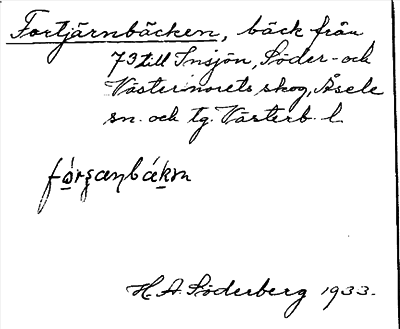 Fortjärnbäcken, bäck från
73 till Insjön, Söder- och
Västernorets skog, Åsele
sn. och tg. Västerb. l.
H. A. Söderberg 1933.